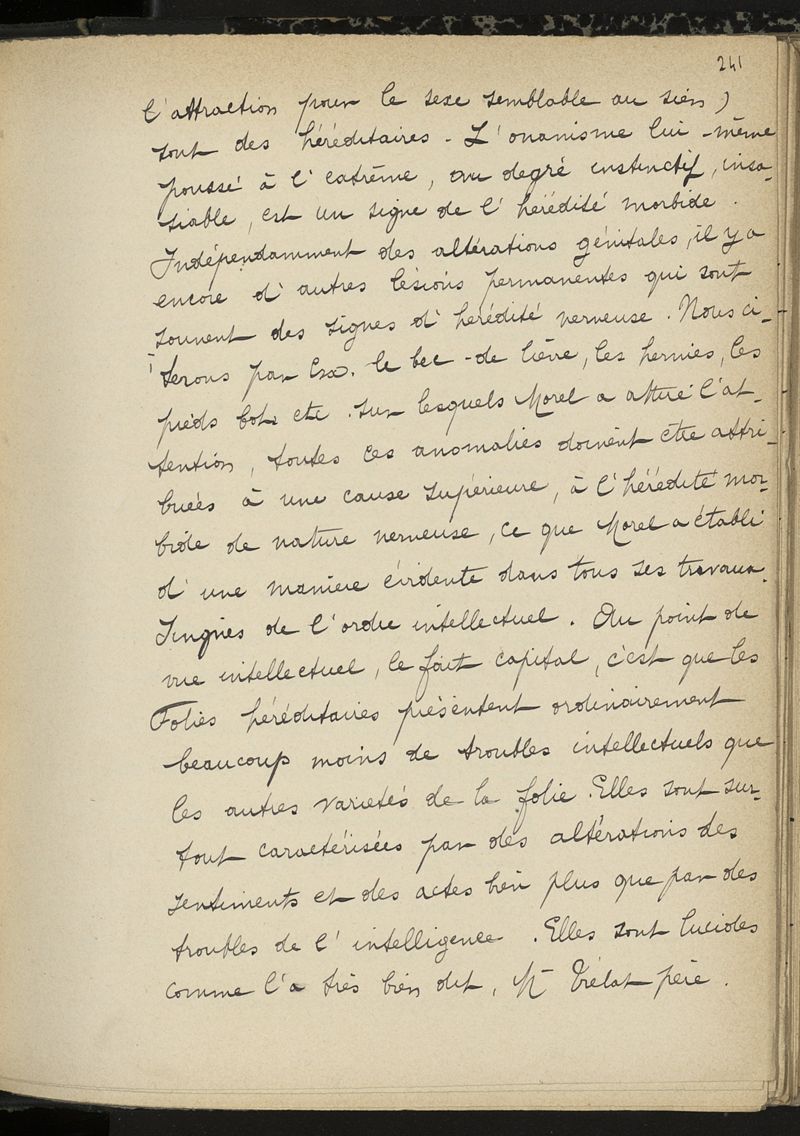 241
l'attraction pour le sexe semblable au sien)
sont des héréditaires - L'onanisme lui-même
poussé à l'extrême, au degré instinctif, insa-
tiable, est un signe de l'hérédité morbide.
Indépendamment des altérations génitales, il y a
encore d'autres lésions permanentes qui sont
souvent des signes d'hérédité nerveuse. Nous ci-
terons par Ex. le bec-de lièvre, les hernies, les
pieds bots etc. sur lesquels Morel a attiré l'at-
tention, toutes ces anomalies doivent être attri-
buées à une cause supérieure, à l'hérédité mor-
bide de nature nerveuse, ce que Morel a établi
d'une manière évidente dans tous ses travaux.
Singnes de l'ordre intellectuel. Au point de
vue intellectuel, le fait capital, c'est que les
Folies héréditaires présentent ordinairement
beaucoup moins de troubles intellectuels que
les autres variétés de la folie. Elles sont sur-
tout caractérisées par des altérations des
sentiments et des actes bien plus que par des
troubles de l'intelligence. Elles sont lucides
comme l'a très bien dit, Mr Trélat père.